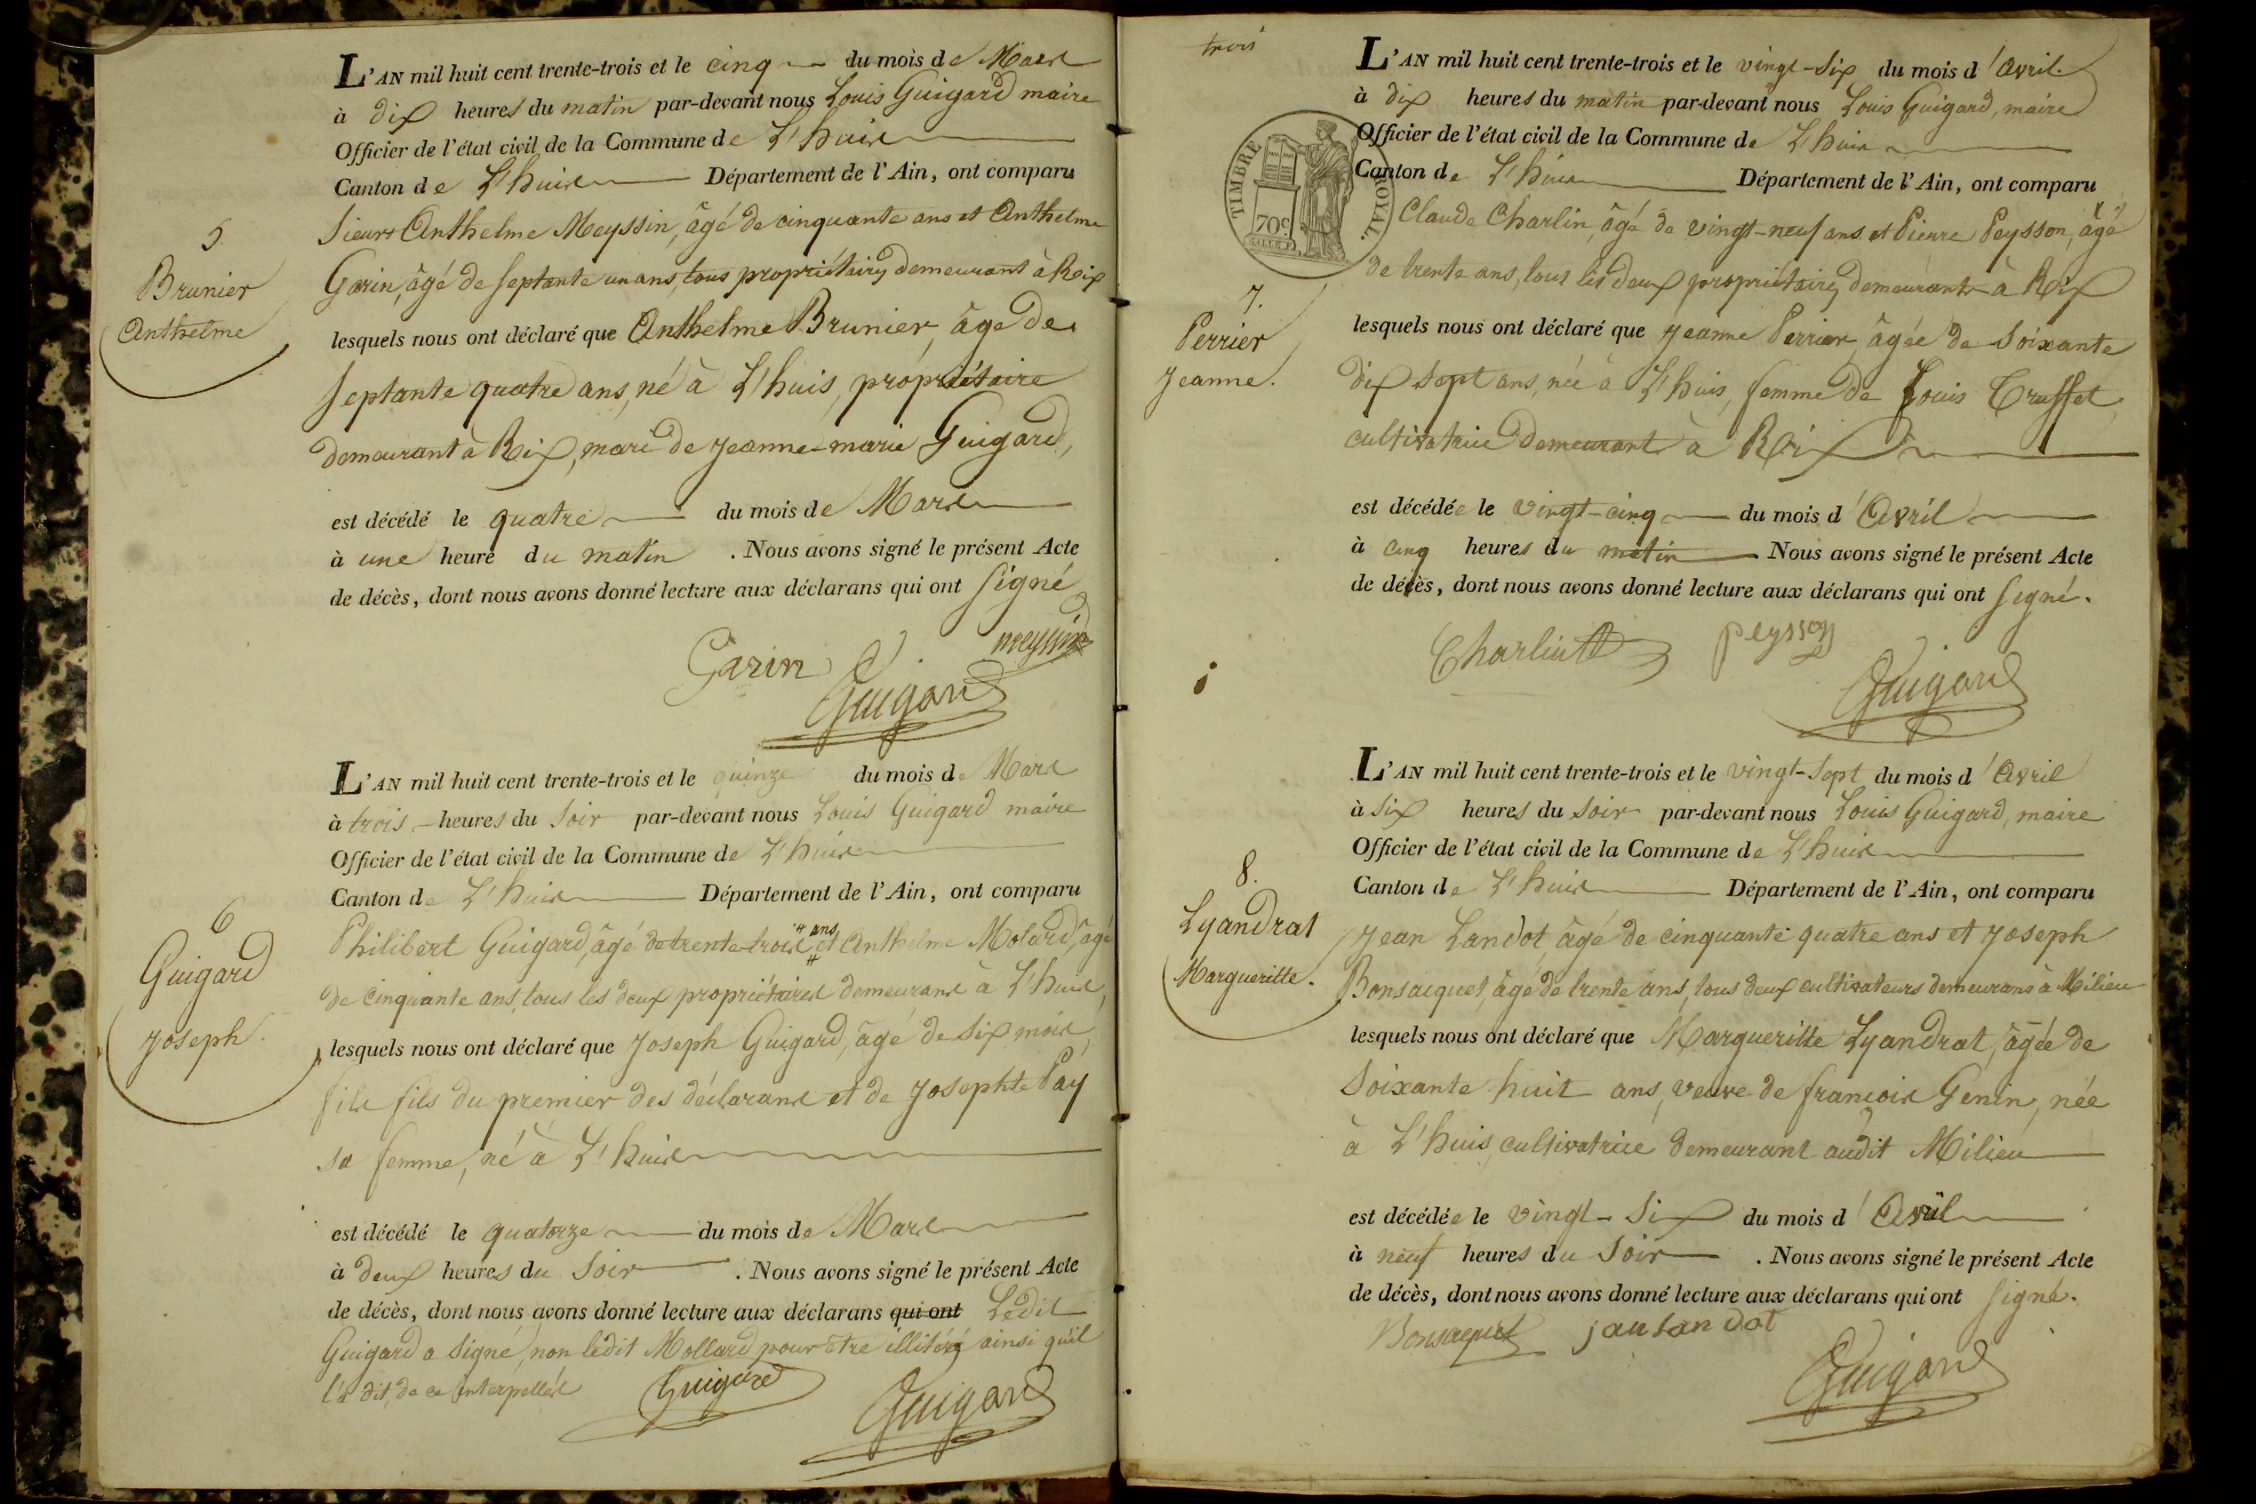 L'AN mil huit cent trente-trois et le cinq du mois de Mars
à dix heures du matin par-devant nous Louis Guigard maire
Officier de l'état civil de la Commune de L'huis
Canton de L'huis Département de l'Ain, ont comparu
Sieurs Anthelme Meyssin, âgé de cinquante ans et Anthelme
Garin, âgé de septante un ans, tous propriétaires demeurant à Rix
5
Brunier
Anthelme
lesquels nous ont déclaré que Anthelme Brunier, âgé de
septante quatre ans, né à L'huis, propriétaire
demeurant à Rix, mari de Jeanne-marie Guigard,
est décédé le quatre du mois de Mars
à une heure du matin . Nous avons signé le présent Acte
de décès, dont nous avons donné lecture aux déclarans qui ont signé
Garin meyssin
Guigard
L'AN mil huit cent trente-trois et le quinze du mois de Mars
à trois heures du soir par-devant nous Louis Guigard maire
Officier de l'état civil de la Commune de L'huis
Canton de L'huis Département de l'Ain, ont comparu
6
Guigard
Joseph
Philibert Guigard, âgé de trente-trois ans et Anthelme Molard, âgé
de cinquante ans, tous les deux propriétaires demeurans à L'huis,
lesquels nous ont déclaré que Joseph Guigard, âgé de six mois,
fils fils du premier des déclarans et de Josephte Pay
sa femme, né à L'huis
est décédé le quatorze du mois de Mars
à deux heures du soir . Nous avons signé le présent Acte
de décès, dont nous avons donné lecture aux déclarans qui ont Ledit
Guigard a signé, non ledit Mollard pour être illitéré ainsi qu'il
l'a dit, de ce interpellés
Guigard Guigard
trois
L'AN mil huit cent trente-trois et le vingt-six du mois d'avril
à dix heures du matin par-devant nous Louis Guigard, maire
Officier de l'état civil de la Commune de L'huis
Canton de L'huis Département de l'Ain, ont comparu
TIMBRE ROYAL.
70c.
Claude Charlin, âgé de vingt-neuf ans et Pierre Peysson, âgé
de trente ans, tous les deux propriétaires demeurants à Rix
7.
Perrier
Jeanne.
lesquels nous ont déclaré que Jeanne Perrier, âgée de soixante
dix sept ans, née à L'huis, femme de Louis Truffet
cultivatrice demeurant à Rix
est décédée le vingt-cinq du mois d'Avril
à cinq heures du matin Nous avons signé le présent Acte
de décès, dont nous avons donné lecture aux déclarans qui ont signé.
Charlin peysson
Guigard
L'AN mil huit cent trente-trois et le vingt-sept du mois d'Avril
à six heures du soir par-devant nous Louis Guigard, maire
Officier de l'état civil de la Commune de L'huis
Canton de L'huis Département de l'Ain, ont comparu
8.
Lyandrat
Margueritte.
Jean Landot, âgé de cinquante quatre ans et Joseph
Bonsacquet, âgé de trente ans, tous deux cultivateurs demeurans à Milieu
lesquels nous ont déclaré que Margueritte Lyandrat, âgée de
soixante huit ans, veuve de francois Genin, née
à L'huis, cultivatrice demeurant audit Milieu
est décédée le vingt-six du mois d'Avril
à neuf heures du soir . Nous avons signé le présent Acte
de décès, dont nous avons donné lecture aux déclarans qui ont signé.
Bonsacquet jan landot
Guigard